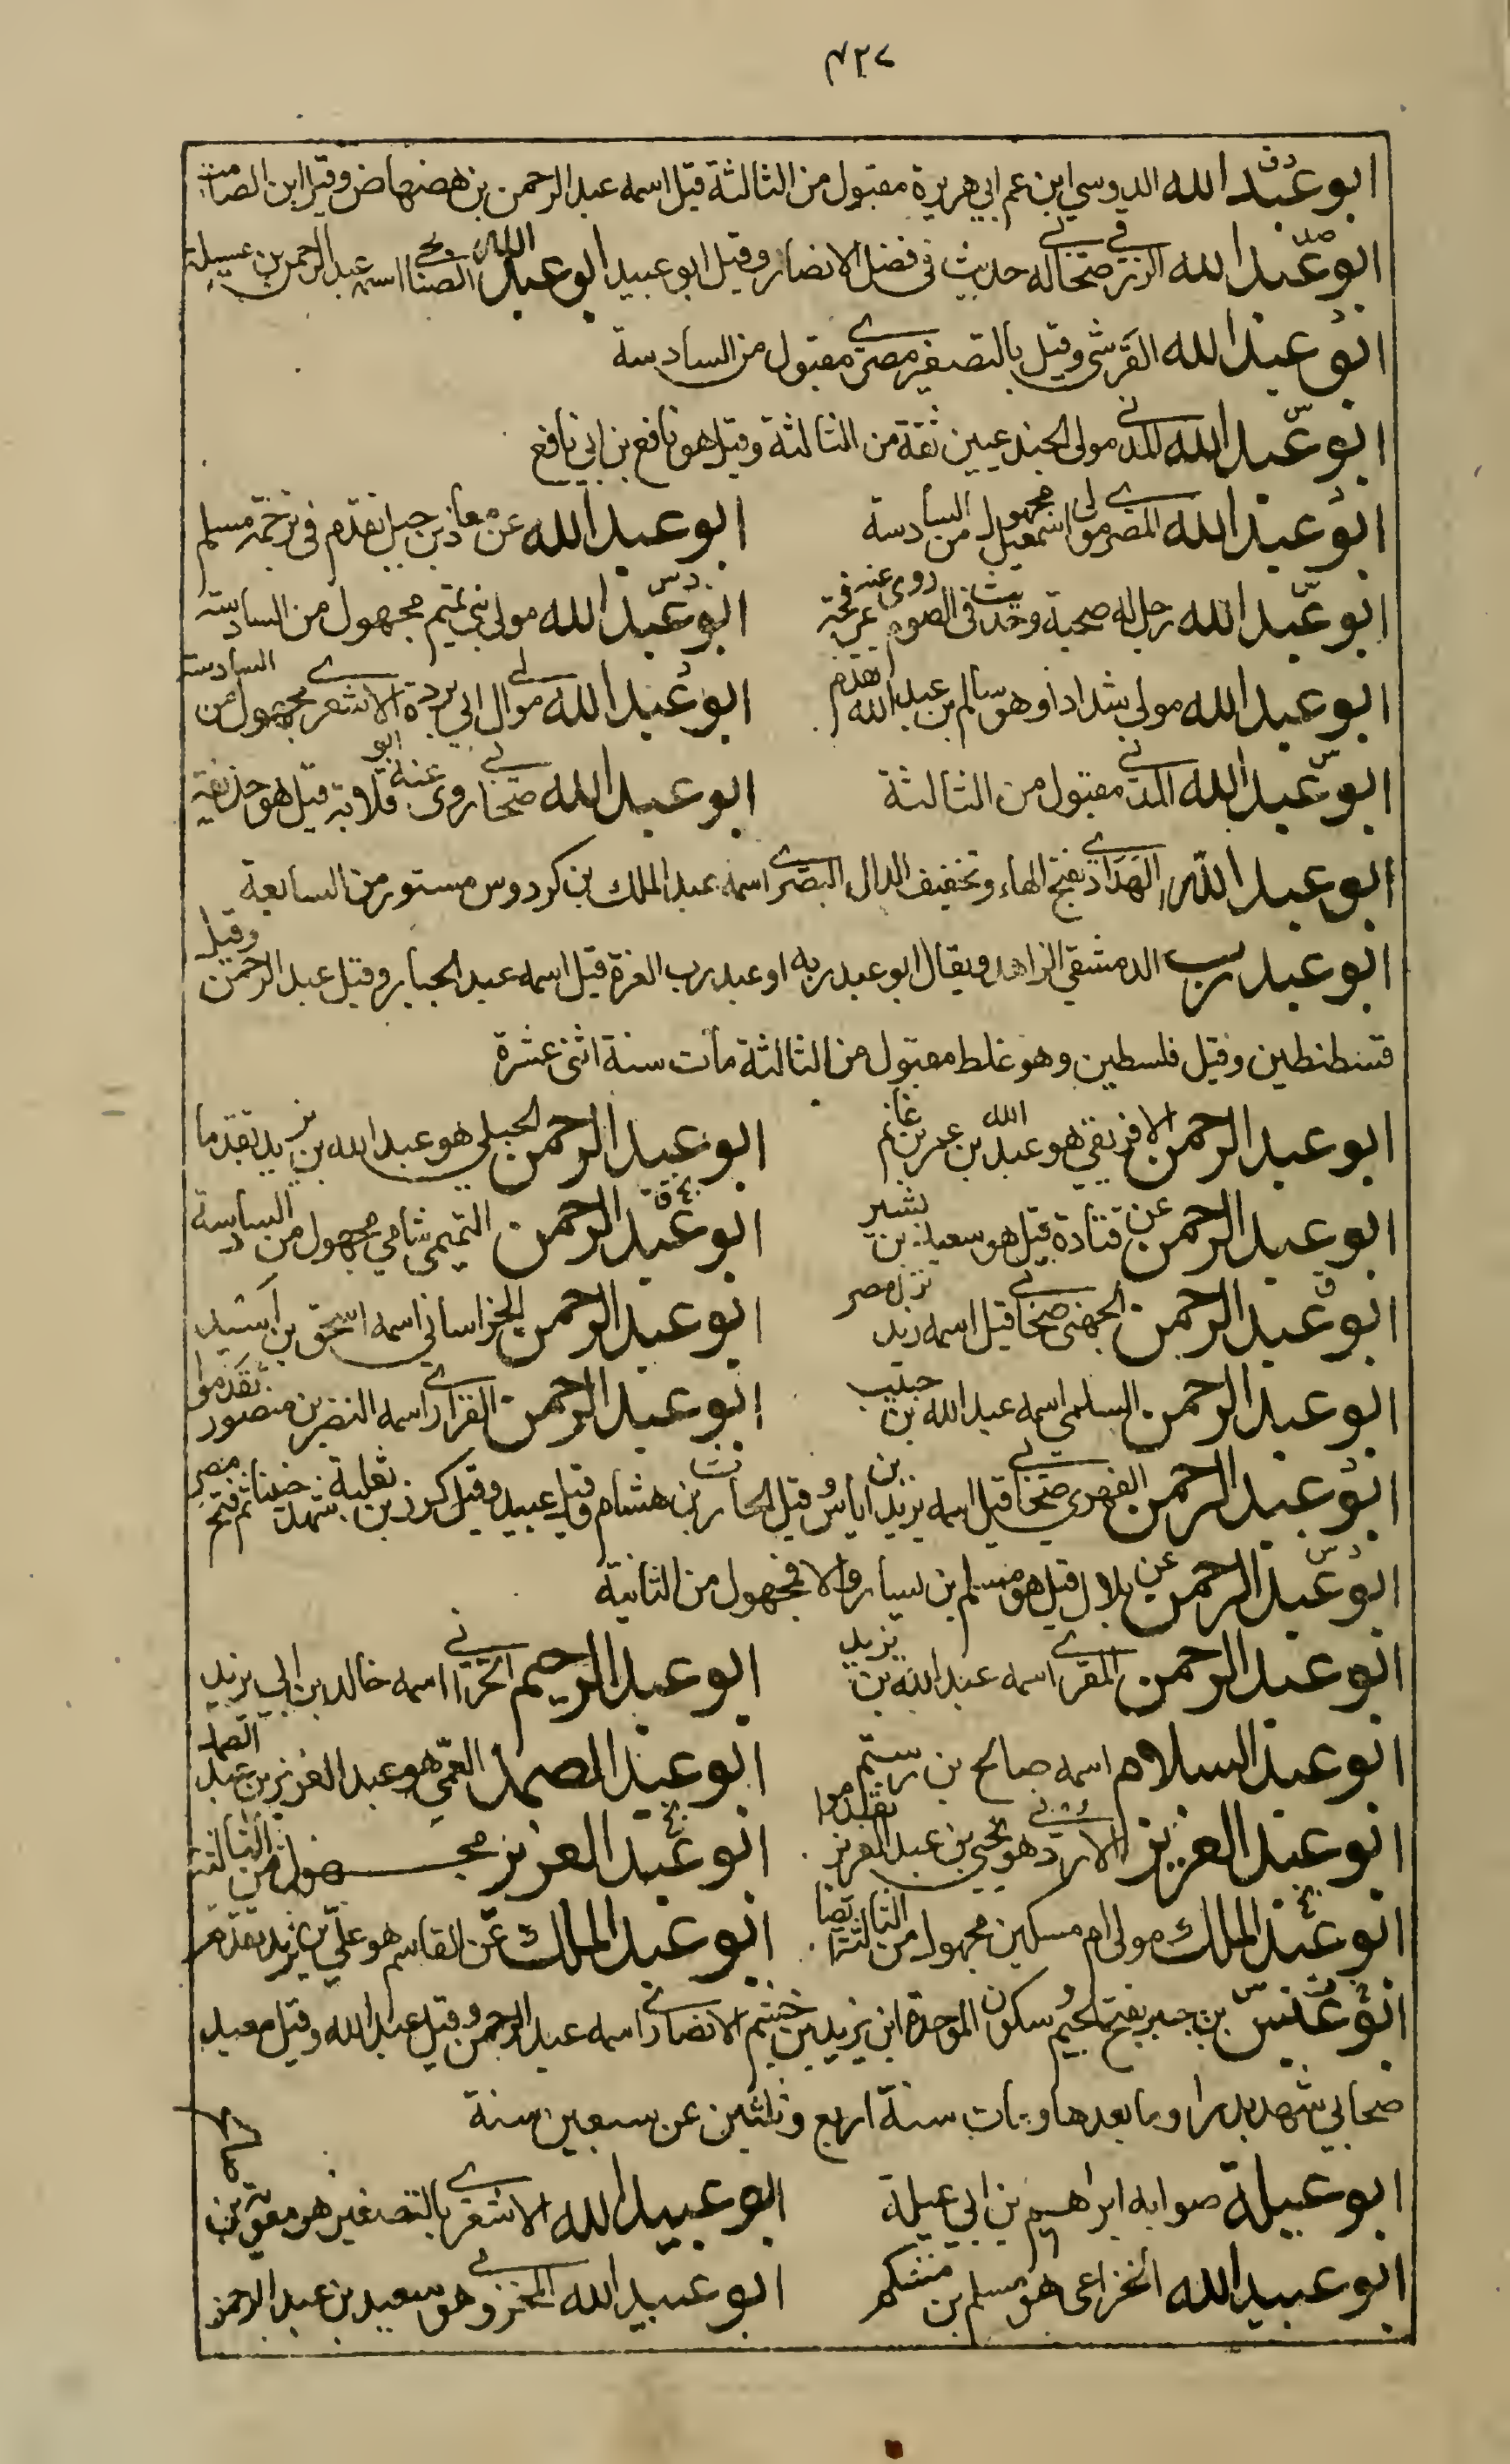 ٤٢٧
ابو عبد الله الدوسي ابن عم ابي هريرة مقبول من الثالثة قيل اسمه عبد الرحمن بن هضهاض وقيل ابن الصامت
ابو عبد الله الزرقي صحابي له حديث في فضل الانصار وقيل ابو عبيد الله ابو عبد الله الصنابحي اسمه عبد الرحمن بن عسيلة
ابو عبد الله القرشي وقيل بالتصغير مصري مقبول من السادسة
ابو عبد الله المدني مولى الجندعيين ثقة من الثالثة وقيل هو نافع بن ابي نافع
ابو عبد الله المصري مولى اسمعيل مجهول من السادسة ابو عبد الله عن معاذ بن جبل تقدم في ترجمة مسلم
ابو عبد الله رجل له صحبة وحديث في الصوم روى عنه عرفجة ابو عبد الله مولى بني تميم مجهول من السادسة
ابو عبد الله مولى شداد وهو سالم بن عبد الله تقدم ابو عبد الله مولى ال ابي بردة الاشعري مجهول من السادسة
ابو عبد الله المدني مقبول من الثالثة ابو عبد الله صحابي روى عنه ابو قلابة قيل هو حذيفة
ابو عبد الله الهدادي بفتح الهاء وتخفيف الدال البصري اسمه عبد الملك بن كردوس مستور من السابعة
ابو عبد رب الدمشقي الزاهد ويقال ابو عبد ربه او عبد رب العزة قيل اسمه عبد الجبار وقيل عبد الرحمن وقيل
قسطنطين وقيل فلسطين وهو غلط مقبول من الثالثة مات سنة اثنى عشرة
ابو عبد الرحمن الافريقي هو عبد الله بن عمر بن غانم ابو عبد الرحمن الحبلي هو عبد الله بن يزيد تقدما
ابو عبد الرحمن عن قتادة قيل هو سعيد بن بشير ابو عبد الرحمن التميمي شامي مجهول من السادسة
ابو عبد الرحمن الجهني صحابي قيل اسمه زيد نزل مصر ابو عبد الرحمن الخراساني اسمه اسحق بن اسيد
ابو عبد الرحمن السلمي اسمه عبد الله بن حبيب ابو عبد الرحمن الفزاري اسمه النضر بن منصور تقدموا
ابو عبد الرحمن الفهري صحابي قيل اسمه يزيد بن اياس وقيل الحارث بن هشام وقيل عبيد وقيل كرز بن ثعلبة شهد حنينا ثم فتح مصر
ابو عبد الرحمن عن بلال قيل هو مسلم بن يسار والا فمجهول من الثانية
ابو عبد الرحمن المقرى اسمه عبد الله بن يزيد ابو عبد الرحيم الحراني اسمه خالد بن ابي يزيد
ابو عبد السلام اسمه صالح بن رستم ابو عبد الصمد العمي هو عبد العزيز بن عبد الصمد
ابو عبد العزيز الاردني هو يحيى بن عبد العزيز تقدموا ابو عبد العزيز مجهول من الثالثة
ابو عبد الملك مولى ام مسكين مجهول من الثالثة ايضا ابو عبد الملك عن القاسم هو علي بن يزيد تقدم
ابو عبس بن جبر بفتح الجيم وسكون الموحدة ابن زيد بن جشم الانصاري اسمه عبد الرحمن وقيل عبد الله وقيل معبد
صحابي شهد بدرا وما بعدها ومات سنة اربع وثلثين عن سبعين سنة
ابو عبيلة صوابه ابراهيم بن ابي عبيلة ابو عبيد الله الاشعري بالتصغير هو معوية بن
ابو عبيد الله الخزاعي هو مسلم بن مشكم ابو عبيد الله المخزومي هو سعيد بن عبد الرحمن